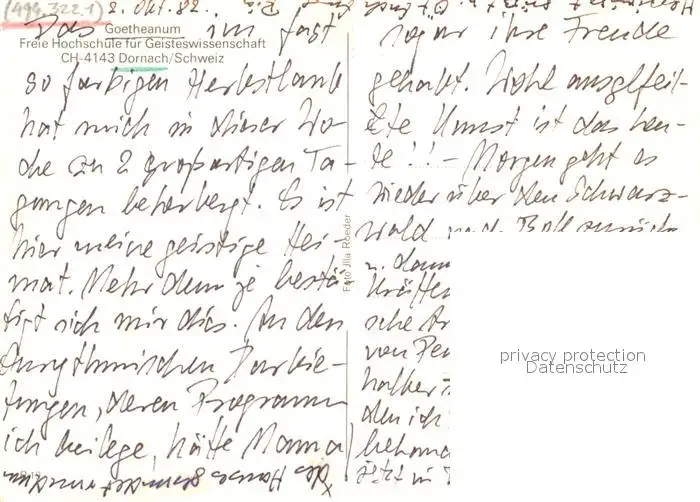 (499.322.1) 2. Okt. 82.
Das Goetheanum im fast
Freie Hochschule für Geisteswissenschaft
CH-4143 Dornach/Schweiz
so farbigen Herbstlaub
hat mich in dieser Wo-
che zu 2 großartigen Ta-
gungen beherbergt. Es ist
hier meine geistige Hei-
mat. Mehr denn je bestä-
tigt sich mir dies. An den
eurythmischen Darbie-
tungen, deren Programm
ich beilege, hätte Mama
Foto Ilia Roeder
sogar ihre Freude
gehabt. Wohl ausgefeil-
te Kunst ist das heu-
te!! - Morgen geht es
wieder über den Schwarz-
wald nach Boll zurück
u. dann
sche
von
halber
den ich
behand
jetzt in
privacy protection
Datenschutz